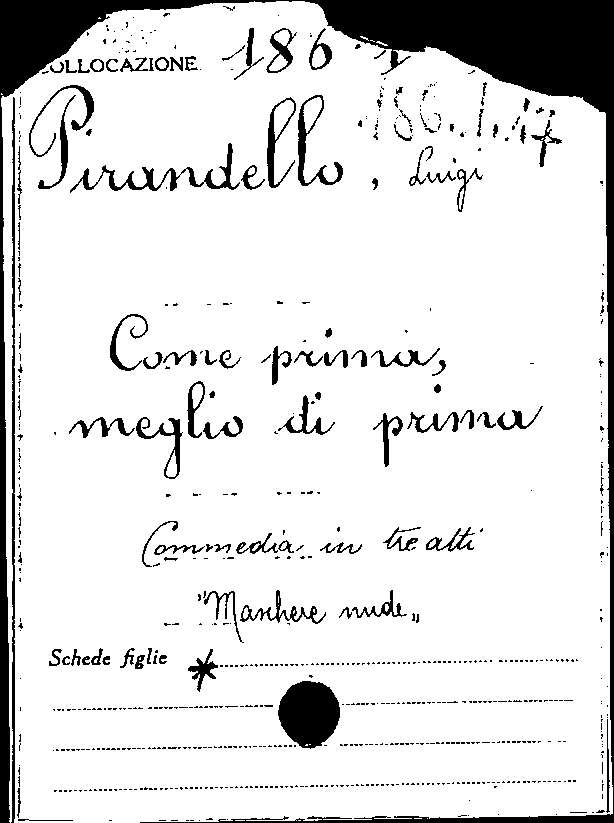 COLLOCAZIONE 186 1
186.1.17
Pirandello, Luigi
Come prima,
meglio di prima
Commedia in tre atti
"Maschere nude„
Schede figlie *